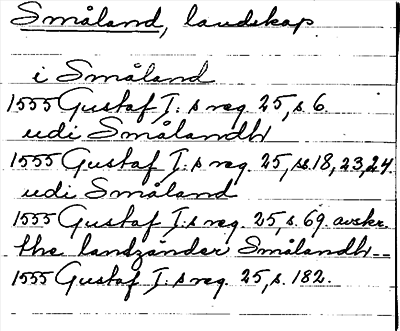 Småland, landskap.
i Småland
1555 Gustaf I:s reg. 25, s. 6.
udi Smålandh
1555 Gustaf I:s reg. 25, ss. 18, 23, 24.
udi Småland
1555 Gustaf I:s reg. 25, s. 69 avskr.
the landzänder Smålandh--
1555 Gustaf I:s reg. 25, s. 182.